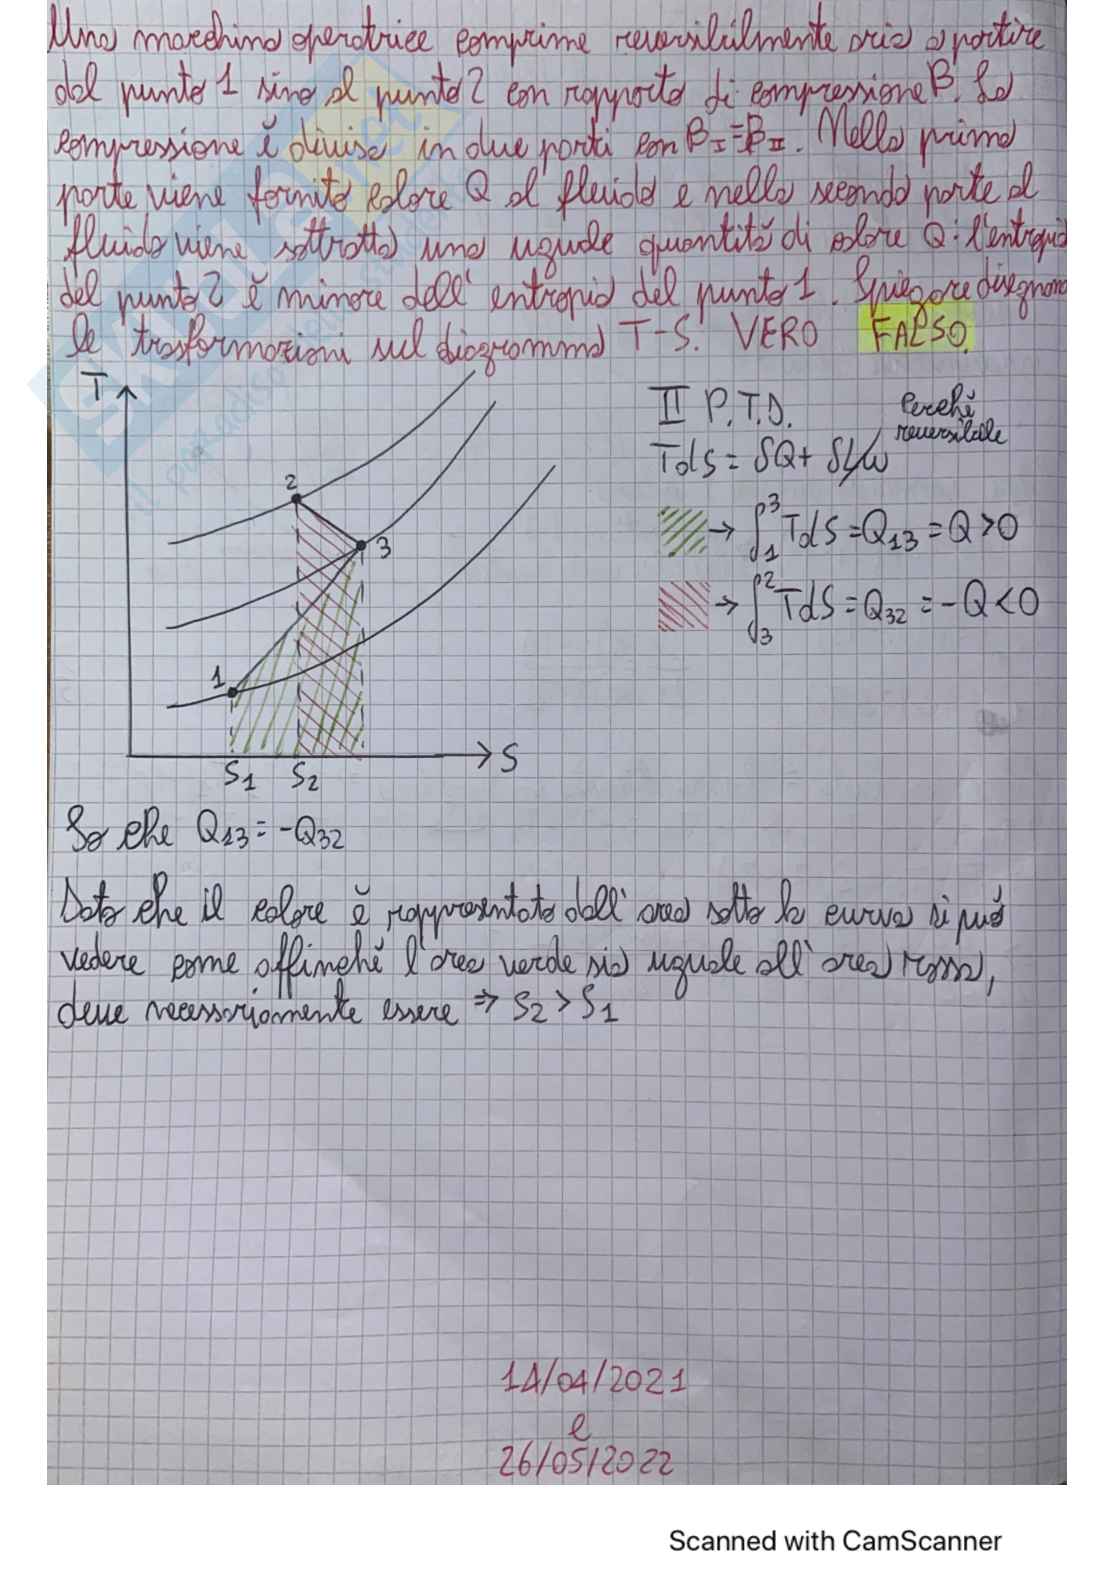 Una macchina operatrice comprime reversibilmente aria a partire
dal punto 1 sino al punto 2 con rapporto di compressione β. La
compressione è divisa in due parti con βI = βII. Nella prima
parte viene fornito calore Q al fluido e nella seconda parte al
fluido viene sottratta una uguale quantità di calore Q: l'entropia
del punto 2 è minore dell'entropia del punto 1. Spiegare disegnando
le trasformazioni sul diagramma T-S. VERO FALSO
T
II P.T.D.
Perché
reversibile
TdS = δQ + δLw
2
3
→ ∫₁³ TdS = Q13 = Q > 0
→ ∫₃² TdS = Q32 = -Q < 0
1
S1 S2 S
So che Q13 = -Q32
Dato che il calore è rappresentato dall'area sotto la curva si può
vedere come affinché l'area verde sia uguale all'area rossa,
deve necessariamente essere ⇒ S2 > S1
14/04/2021
e
26/05/2022
Scanned with CamScanner